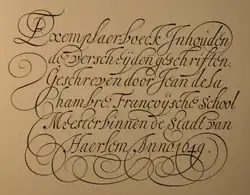 Exemplaer-boeck Inhouden
de verscheijden geschriften.
Geschreven door Jean de la
Chambre Francoysche School
Meester binnen de Stadt van
Haerlem Anno 1649.